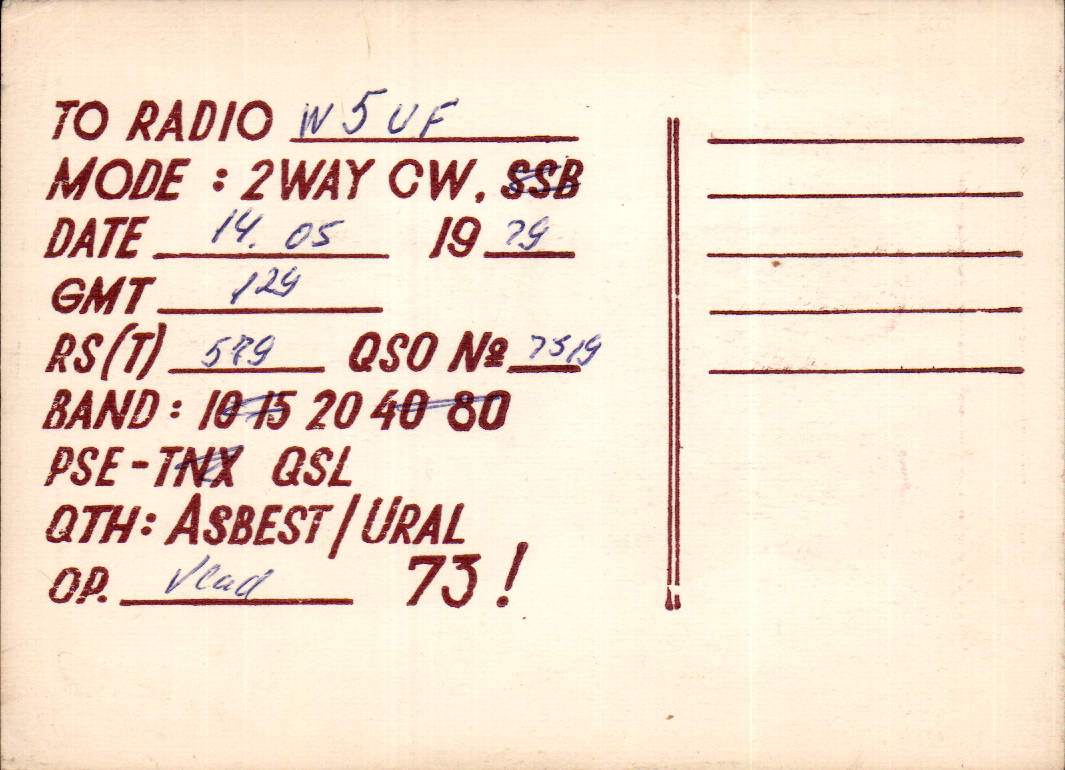 TO RADIO W5UF
MODE : 2WAY CW, SSB
DATE 14. 05 19 79
GMT 129
RS(T) 579 QSO № 7519
BAND : 10 15 20 40 80
PSE - TNX QSL
QTH: ASBEST / URAL
OP. Vlad 73!